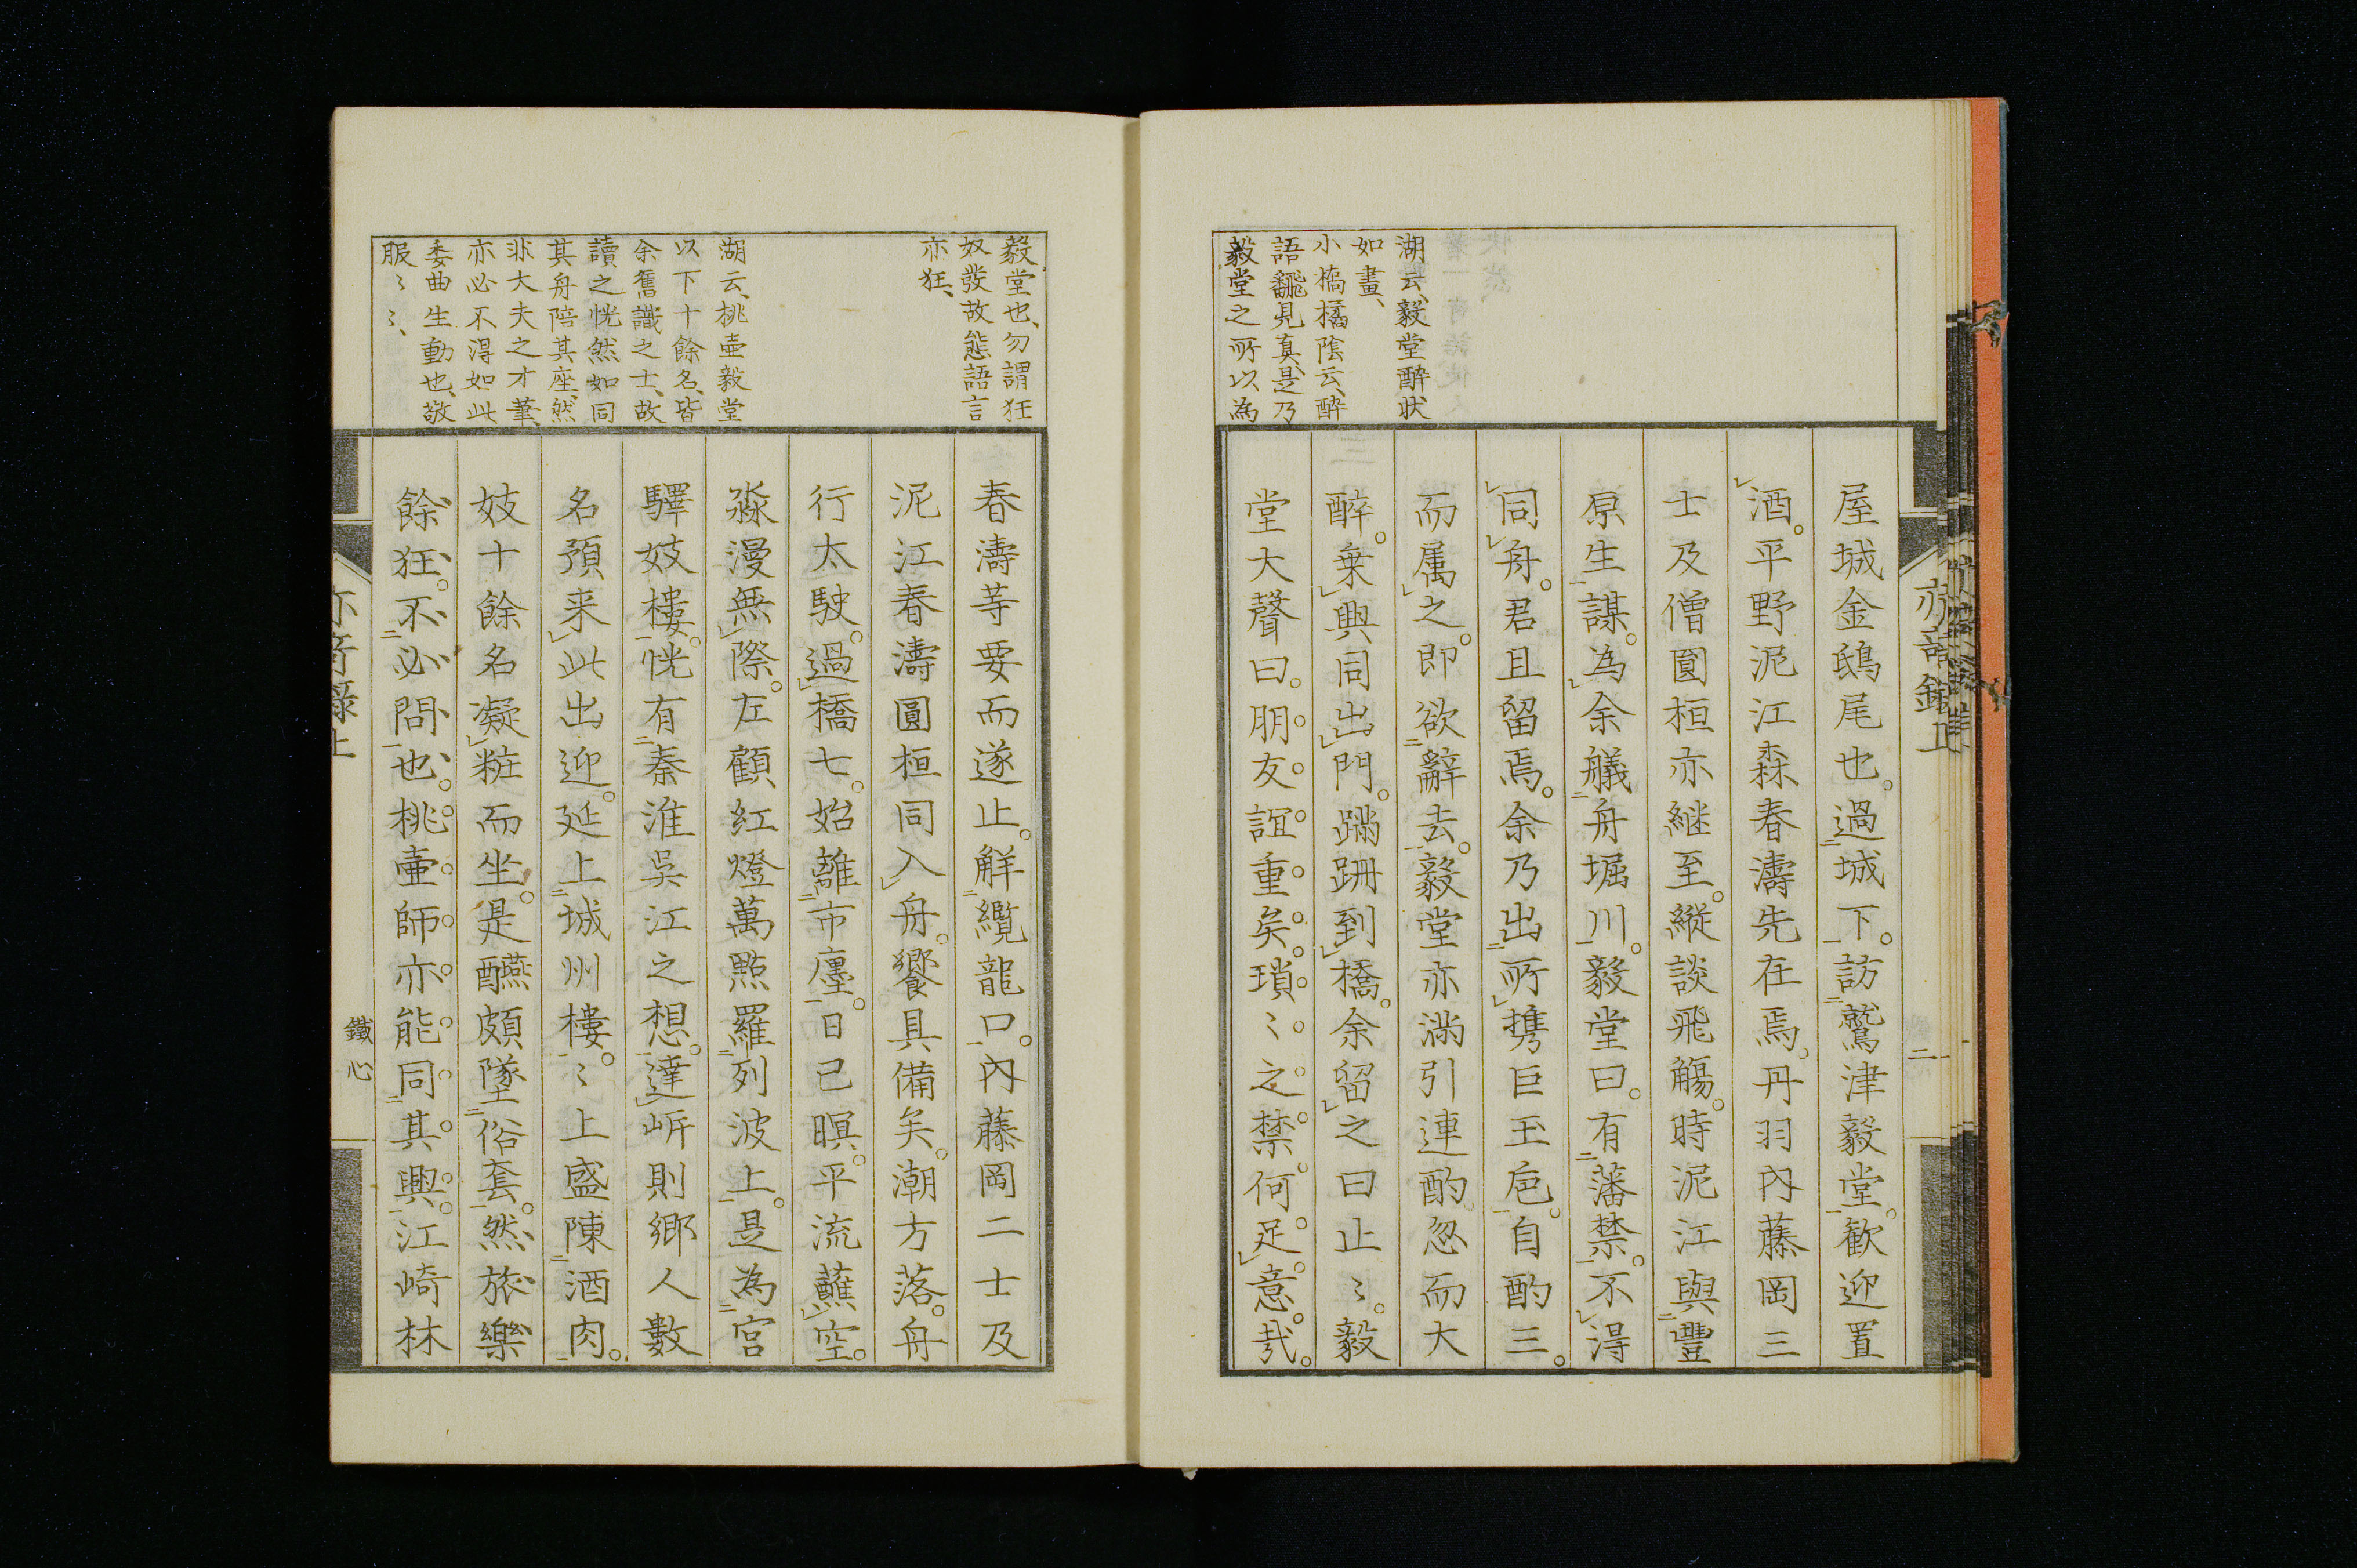 湖云、毅堂醉狀
如畫、
小橋橘陰云、醉
語飜見真、是乃
毅堂之所以為
屋城金鴟尾也。過城下。訪鷲津毅堂。歡迎置
酒。平野泥江森春濤先在焉。丹羽内藤岡三
士及僧圓桓亦継至。縱談飛觴。時泥江與豐
原生謀。為余艤舟堀川。毅堂曰。有藩禁。不得
同舟。君且留焉。余乃出所携巨玉巵。自酌三。
而属之。即欲辭去。毅堂亦滿引連酌。忽而大
醉。乗興同出門。蹣跚到橋。余留之曰止〻。毅
堂大聲曰。朋友誼重矣。瑣〻之禁。何足意哉。
亦奇錄上
二
毅堂也、勿謂狂
奴發故態語言
亦狂、
湖云、桃壷毅堂
以下十餘名、皆
余舊識之士、故
讀之恍然如同
其舟陪其座、然
非大夫之才筆、
亦必不得如此
委曲生動也、敬
服〻〻、
春濤等要而遂止。觧纜龍口。内藤岡二士及
泥江春濤圓桓同入舟。饗具備矣。潮方落。舟
行太駛。過橋七。始離市廛。日已暝。平流蘸空。
淼漫無際。左顧紅燈萬點羅列波上。是為宮
驛妓樓。恍有秦淮吳江之想。達岸則鄉人數
名預来此出迎。延上城州樓。〻上盛陳酒肉。
妓十餘名凝粧而坐。是醼頗墜俗套。然旅樂
餘狂。不必問也。桃壷師亦能同其興。江崎林
亦奇録上
鐵心